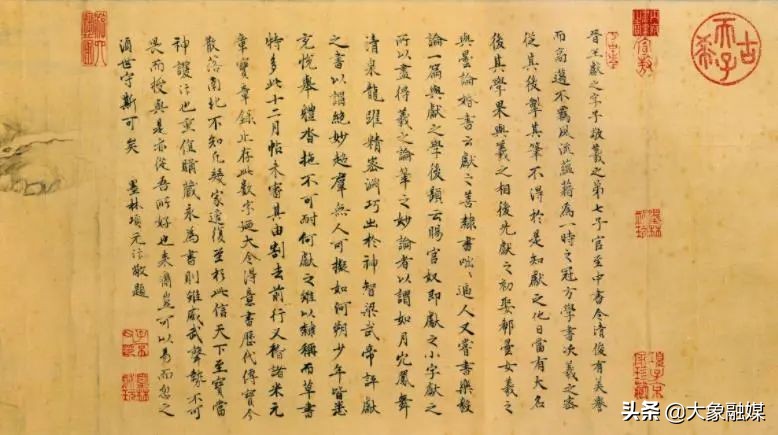 晉王獻之字子敬羲之第七子官至中書令清峻有美譽
而高邁不羈風流蘊藉為一時之冠方學書次羲之密
從其後掣其筆不得於是知獻之他日當有大名
後其學果與羲之相後先獻之初娶郗曇女羲之
與曇論婚書云獻之善隸書咄咄逼人又嘗書樂毅
論一篇與獻之學後題云賜官奴即獻之小字獻之
所以盡得羲之論筆之妙論者以謂如丹穴鳳舞
清泉龍躍精密淵巧出於神智梁武帝評獻
之書以謂絕妙超羣無人可擬如河朔少年皆悉
充悅舉體沓拖不可耐何獻之雖以隸稱而草書
特多此十二月帖未審其由割去前行又稽諸米元
章寶章錄止存此數字迺大令得意書歷代傳寶今
散落南北不知凡幾家遠復至於此信天下至寶當
神護之也重值購藏永為書則雖威武勢不可
畏而授與是亦從吾所好也豈可以易而忽之
世守斯可矣 墨林項元汴敬題
古希天子
墨林秘玩
項子京家珍藏
头条 @大象融媒